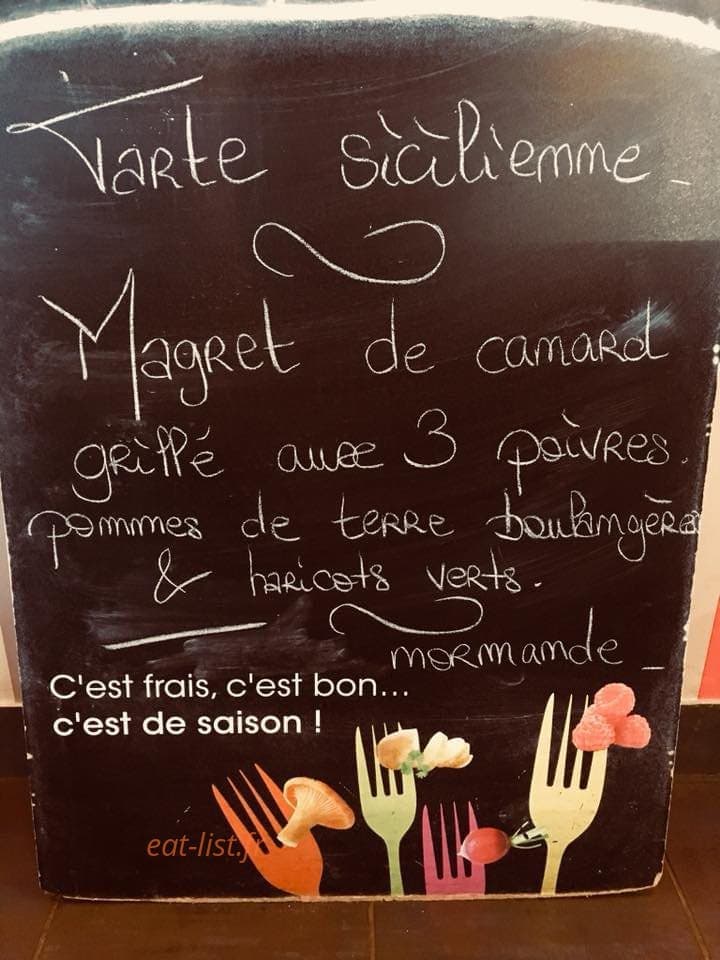 Tarte sicilienne_
Magret de canard
grillé aux 3 poivres.
pommes de terre boulangère
& haricots verts.
normande_
C'est frais, c'est bon...
c'est de saison !
eat-list.fr